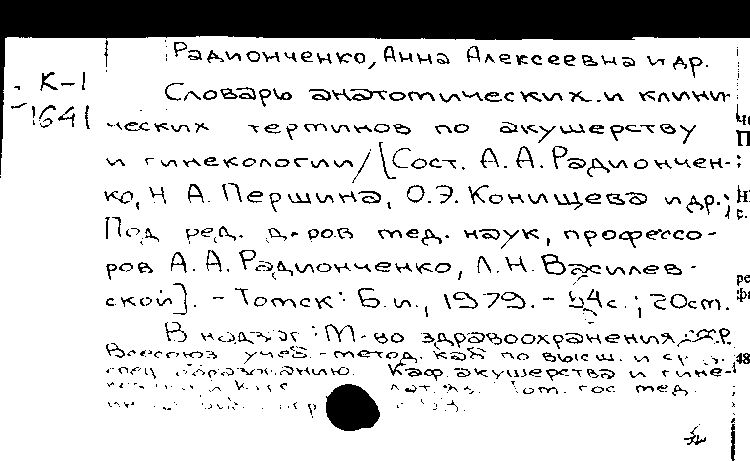 К-1
1641
Радионченко, Анна Алексеевна и др.
Словарь анатомических и клини-
ческих терминов по акушерству
и гинекологии/[Сост. А.А.Радиончен-
ко, Н А. Першина, О.Э.Конищева и др.;
Под ред. д-ров мед. наук, профессо-
ров А.А.Радионченко, Л.Н.Василев-
ской]. - Томск: Б.и., 1979. - 54с.; 20см.
В надзаг: М-во здравоохранения
Всесоюз учеб.-метод. каб по высш. и ср
спец образованию. Каф. акушерства и гине-
лат. яз. Том. гос мед.
48